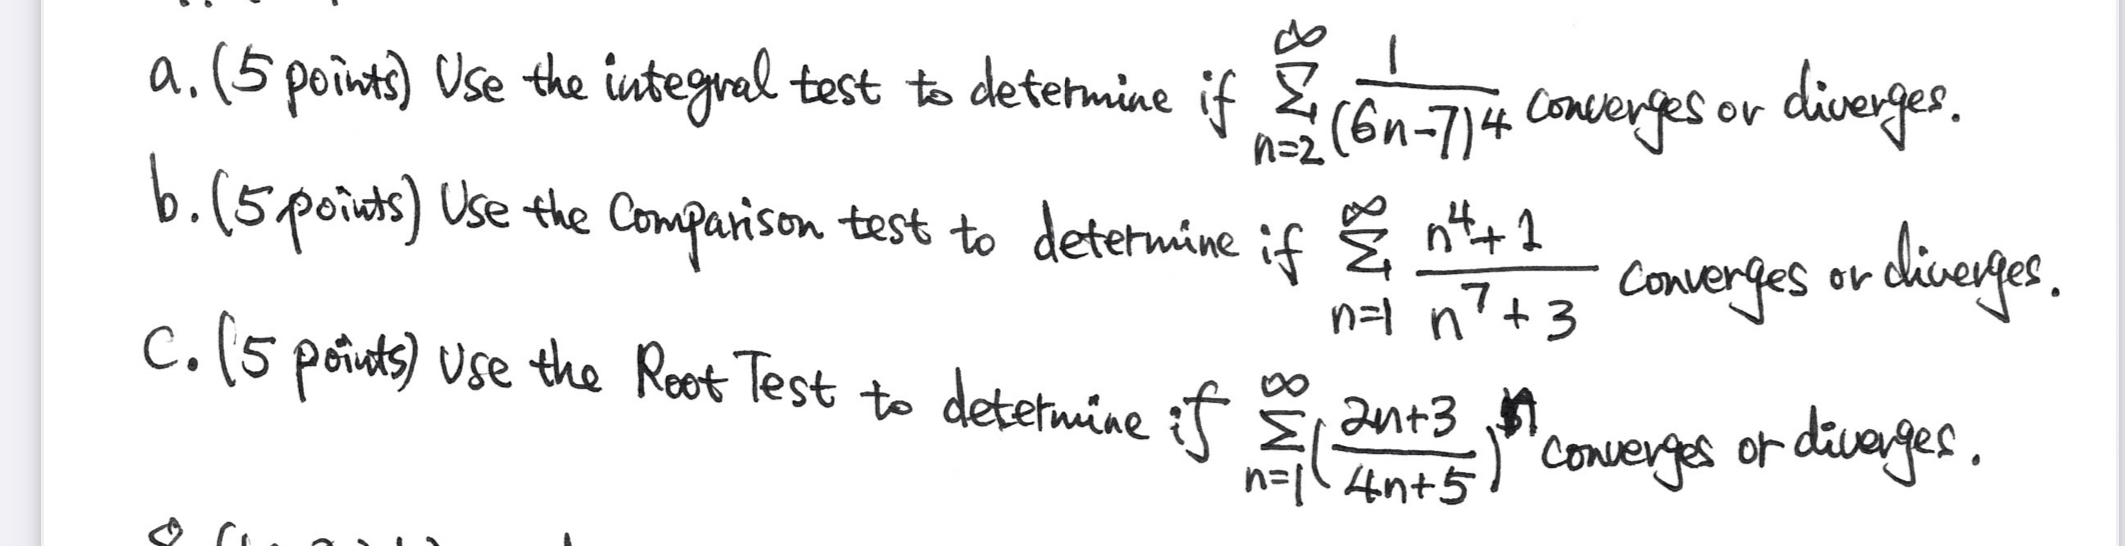 a. (5 points) Use the integral test to determine if ∞ Σ n=2 1/(6n-7)^4 converges or diverges.
b. (5 points) Use the Comparison test to determine if ∞ Σ n=1 n^4+1/n^7+3 converges or diverges.
c. (5 points) Use the Root Test to determine if ∞ Σ n=1 (2n+3/4n+5)^n converges or diverges.